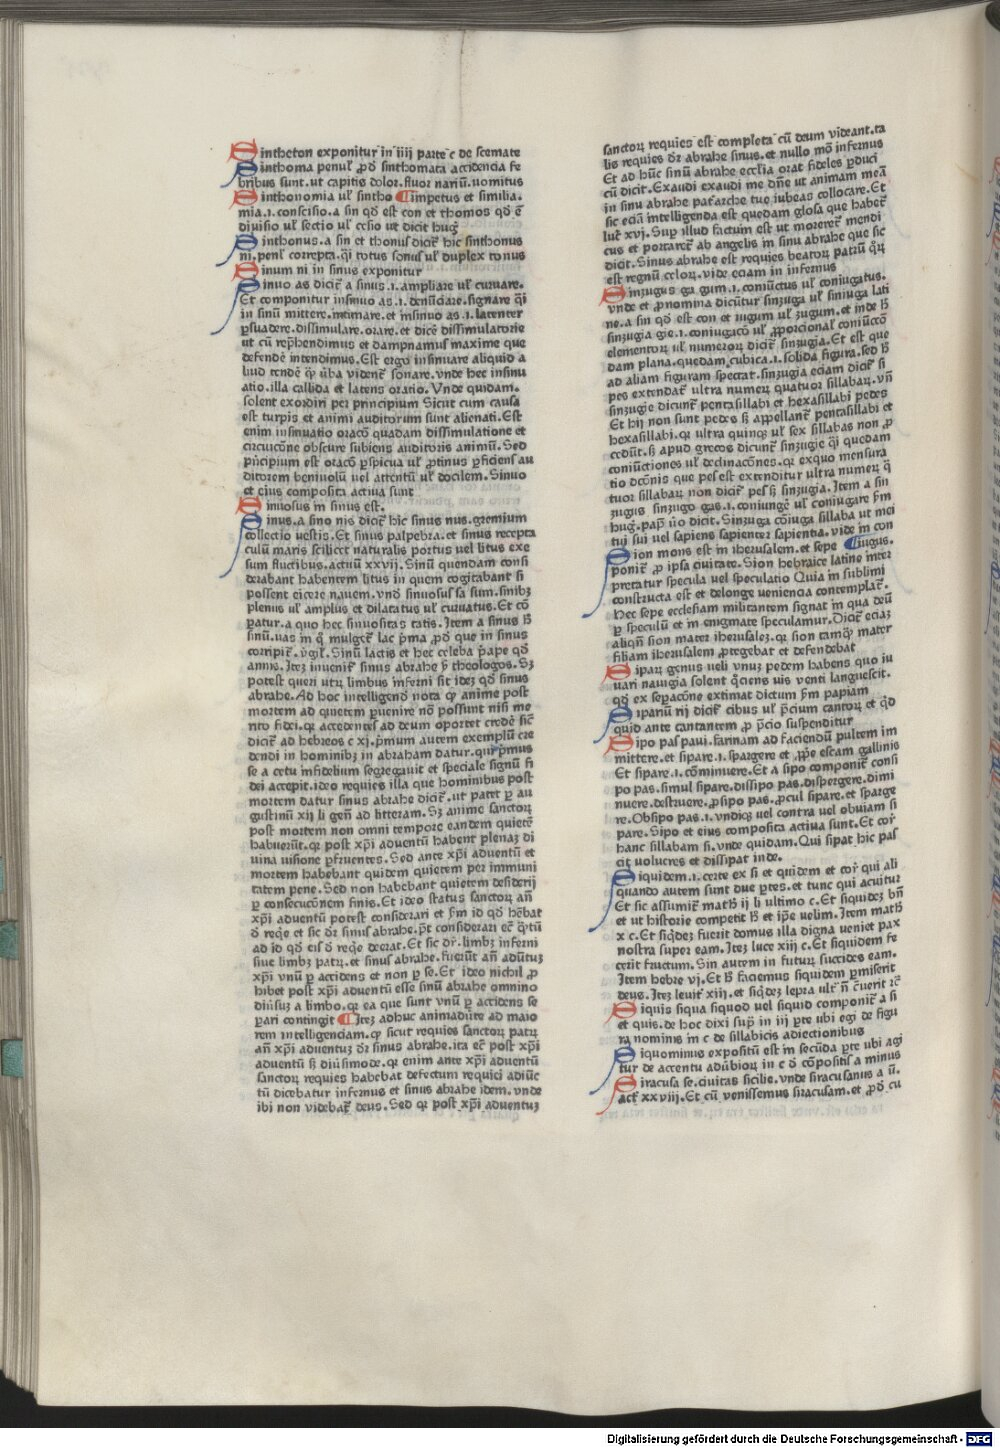 Sintheton exponitur in iiij parte c de scemate
Sinthoma penul' ꝓd' sinthomata accidencia fe
bribus sunt. ut capitis dolor. fluor nariū. uomitus
Sinthonomia ul' sintho ¶ impetus et similia.
mia .i. conscisio. a sin qd' est con et thomos qd' ē
diuisio ul' sectio ul' cesio ut dicit hug
Sinthonus. a sin et thonus dicit' hic sinthonus
ni. penl' correpta. q̄i totus sonus ul' duplex tonus
Sinum ni in sinus exponitur
Sinuo as dicit' a sinus .i. ampliare ul' curuare.
Et componitur insinuo as .i. denūciare. signare q̄i
in sinū mittere. intimare. et insinuo as .i. latenter
ꝑsuadere. dissimulare. orare. et dicē dissimulatorie
ut cū rep̄hendimus et dampnamus maxime que
defendē intendimus. Est ergo insinuare aliquid a
liud tendē qꝫ ūba vident' sonare. vnde hec insinu
atio. illa callida et latens oratio. Vnde quidam.
solent exordiri per principium Sicut cum causa
est turpis et animi auditorum sunt alienati. Est
enim insinuatio oracō quadam dissimulatione et
circuicōne obscure subiens auditoris animū. Sed
pricipium est oracō ꝑspicua ul' ꝓtinus ꝑficiens au
ditorem beniuolū uel attentū ul' docilem. Sinuo
et eius composita actiua sunt
Sinuosus in sinus est.
Sinus. a sino nis dicit' hic sinus nus. gremium
collectio vestis. Et sinus palpebra. et sinus recepta
culū maris scilicet naturalis portus uel litus exe
sum fluctibus. actuū xxvij. Sinū quendam consi
derabant habentem litus in quem cogitabant si
possent eicere nauem. vnd' sinuosus sa sum. sinibꝫ
plenus ul' amplus et dilatatus ul' curuatus. Et cō
ꝑatur. a quo hec sinuositas tatis. Item a sinus hͦ
sinū. uas in q̊ mulget' lac p̄ma ꝓd' que in sinus
corripit'. v̄gil'. Sinū lactis et hec celeba p̄ape qd'
annis. Itez inuenit' sinus abrahe ṗ theologos. Sꝫ
potest queri utrꝫ limbus inferni sit idez qd' sinus
abrahe. Ad hoc intelligend' nota qꝫ anime post
mortem ad quietem ꝑuenire nō possunt nisi me
rito fidei. qꝛ accedentes ad deum oportet credē sic̄
dicit' ad hebreos c xj. p̄mum autem exemplū cre
dendi in hominibꝫ in abraham datur. qui p̄mus
se a cetu infidelium segregauit et speciale signū fi
dei accepit. ideo requies illa que hominibus post
mortem datur sinus abrahe dicit'. ut patet ꝑ au
gustinū xij li geñ ad litteram. Sꝫ anime sanctorꝝ
post mortem non omni tempore eandem quietē
habuerūt. qꝛ post xp̄i aduentū habent plenaz di
uina uisione ꝑfruentes. Sed ante xp̄i aduentū et
mortem habebant quidem quietem per immuni
tatem pene. Sed non habebant quietem desiderij
ꝑ consecucōnem finis. Et ideo status sanctorꝝ añ
xp̄i aduentū potest considerari et ẜm id qd' hēbat
d' reqe et sic dr̄ sinus abrahe. p̄t considerari ec̄ q̄tū
ad id qd' eis d' reqe deerat. Et sic dr̄. limbꝫ inferni
siue limbꝫ patrꝝ. et sinus abrahe. fuerūt añ adūtuꝫ
xp̄i vnū ꝑ accidens et non ꝑ se. Et ideo nichil ꝓ
hibet post xp̄i aduentū esse sinū abrahe omnino
diūsuꝫ a limbo. qꝛ ea que sunt vnū ꝑ accidens se
ꝑari contingit ¶ Itez adhuc animaduerte ad maio
rem intelligenciam. qꝫ sicut requies sanctorꝝ patrꝝ
añ xp̄i aduentuꝫ dr̄ sinus abrahe. ita ec̄ post xp̄i
aduentū sꝫ diūsimode. qꝛ enim ante xp̄i aduentū
sanctorꝝ requies habebat defectum requici adiūc
tū dicebatur infernus et sinus abrahe idem. vnde
ibi non videbat' deus. Sed qꝛ post xp̄i aduentuꝫ
sanctorꝝ requies est completa cū deum videant. ta
lis requies dr̄ abrahe sinus. et nullo mō infernus
Et ad hūc sinū abrahe ecclīa orat fideles ꝑduci
cū dicit. Exaudi exaudi me dn̄e ut animam meā
in sinu abrahe pat'arche tue iubeas collocare. Et
sic eciā intelligenda est quedam glosa que habet'
luč xvj. Sup illud factum est ut moreret' mendi
cus et portaret' ab angelis in sinu abrahe que sic
dicit. Sinus abrahe est requies beatorꝝ patrū q̊rꝝ
est regnū celorꝝ. vide eciam in infernus
Sinzugus ga gum .i. coniūctus ul' coniugatus.
vnde et ꝓnomina dicūtur sinzuga ul' siniuga lati
ne. a sin qd' est con et iugum ul' zugum. et inde hͦ
sinzugia gie .i. coniugacō ul' ꝓporcional' coniūccō
elementorꝝ ul' numerorꝝ dicit' sinzugia. Et est que
dam plana. quedam cubica .i. solida figura. sed hͦ
ad aliam figuram spectat. sinzugia eciam dicit' si
pes extendat' ultra numerꝝ quatuor sillabarꝝ. vñ
sinzugie dicunt' pentasillabi et hexasillabi pedes
Et hij non sunt pedes sꝫ appellant' pentasillabi et
hexasillabi. qꝛ ultra quinqꝫ ul' sex sillabas non ꝓ
cedūt. sꝫ apud grecos dicunt' sinzugie q̄i quedam
coniūctiones ul' declinacōnes. qꝛ exquo mensura
tio dcōnis que pes est extenditur ultra numerꝝ q̊
tuor sillabarꝝ non dicit' pes sꝫ sinzugia. Item a sin
zugus sinzugo gas .i. coniungē ul' coniugare ẜm
hug. pap̄ ūo dicit. Sinzuga cōiuga sillaba ut mei
tui sui vel sapiens sapienter sapientia. vide in con
Sion mons est in iherusalem. et sepe ¶ iugus.
ponit' ꝓ ipsa ciuitate. Sion hebraice latine inter
pretatur specula vel speculatio Quia in sublimi
constructa est et delonge veniencia contemplat'.
Hec sepe ecclesiam militantem signat in qua deū
ꝑ speculū et in enigmate speculamur. Dicit' eciaꝫ
aliqñ sion mater iherusalez. qꝛ sion tamqꝫ mater
filiam iherusalem ꝓtegebat et defendebat
Siparꝫ genus ueli vnuꝫ pedem habens quo iu
uari nauigia solent q̊ciens uis venti languescit.
qd' ex seꝑacōne extimat dictum ẜm papiam
Sipariū rij dicit' cibus ul' p̄cium cantorꝝ et q̊d
quid ante cantantem ꝓ p̄cio suspenditur
Sipo pas paui. farinam ad faciendū pultem im
mittere. et sipare .i. spargere et ꝓp̄e escam gallinis
Et sipare .i. cōminuere. Et a sipo componit' consi
po pas. simul sipare. dissipo pas. dispergere. dimi
nuere. destruere. ꝓsipo pas. ꝓcul sipare. et sparge
re. Obsipo pas .i. vndiqꝫ uel contra vel obuiam si
pare. Sipo et eius composita actiua sunt. Et cor̄
hanc sillabam si. vnde quidam. Qui sipat hic pas
cit volucres et dissipat inde.
Siquidem .i. certe ex si et quidem et cor̄ qui ali
quando autem sunt due ꝑtes. et tunc qui acuitur
Et sic assumit' math ij li ultimo c. Et siquidez bñ
et ut historie competit hͦ et ip̄e uelim. Item math
x c. Et siq̇dez fuerit domus illa digna ueniet pax
nostra super eam. Itez luce xiij c. Et siquidem fe
cerit fructum. Sin autem in futurꝝ succides eam.
Item hebre vj. Et hͦ faciemus siquidem ꝑmiserit
deus. Itez leuit' xiij. et siq̇dez lepra ult' ñ c̄uerit rc̄
Siquis siqua siquod vel siquid componit' a si
et quis. de hoc dixi sup̄ in iij ꝑte ubi egi de figu
ra nominis in c de sillabicis adiectionibus
Siquominus expositū est in secūda ꝑte ubi agi
tur de accentu adūbiorꝝ in c d' cōpositis a minus
Siracusa se. ciuitas sicilie. vnde siracusanus a ū.
act' xxviij. Et cū venissemus siracusam. et ꝓd' cu
Digitalisierung gefördert durch die Deutsche Forschungsgemeinschaft - DFG